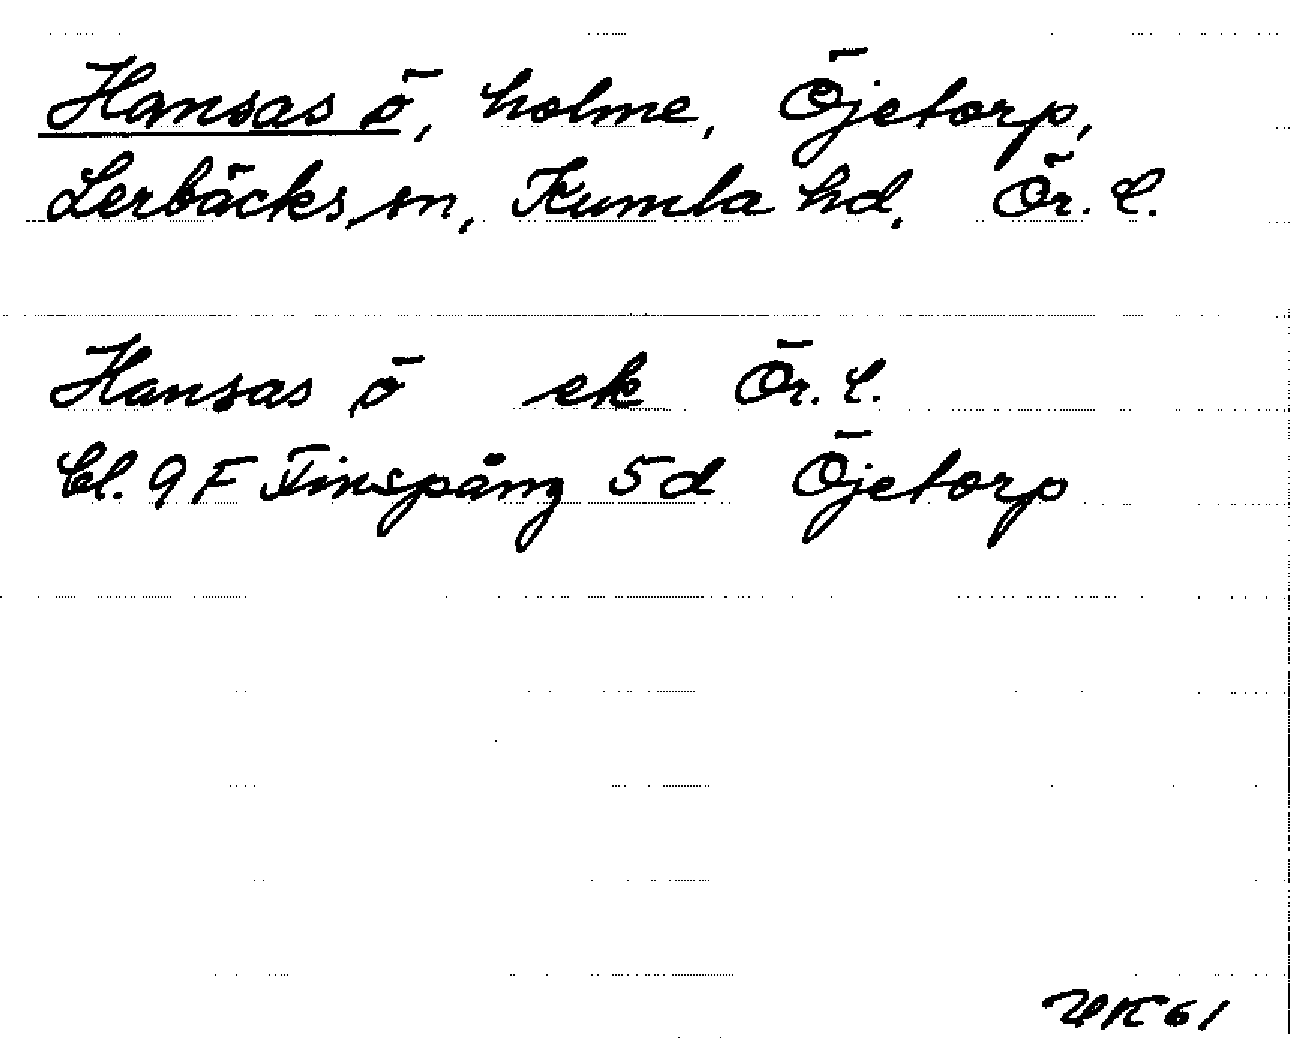 Hansas ö, holme, Öjetorp,
Lerbäcks sn, Kumla hd, Ör. l.
Hansas ö ek Ör. l.
bl. 9 F Finspång 5 d Öjetorp
UK 61